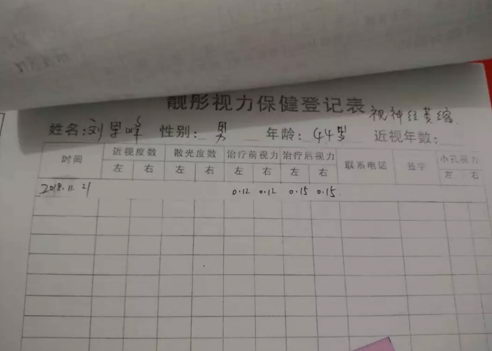 靓彤视力保健登记表
视神经萎缩
姓名:刘 峰 性别: 男 年龄: 44岁 近视年数:
时间 近视度数 散光度数 治疗前视力 治疗后视力 联系电话 签字 小孔视力
左 右 左 右 左 右 左 右 左 右
2018.11.21 0.12 0.12 0.15 0.15